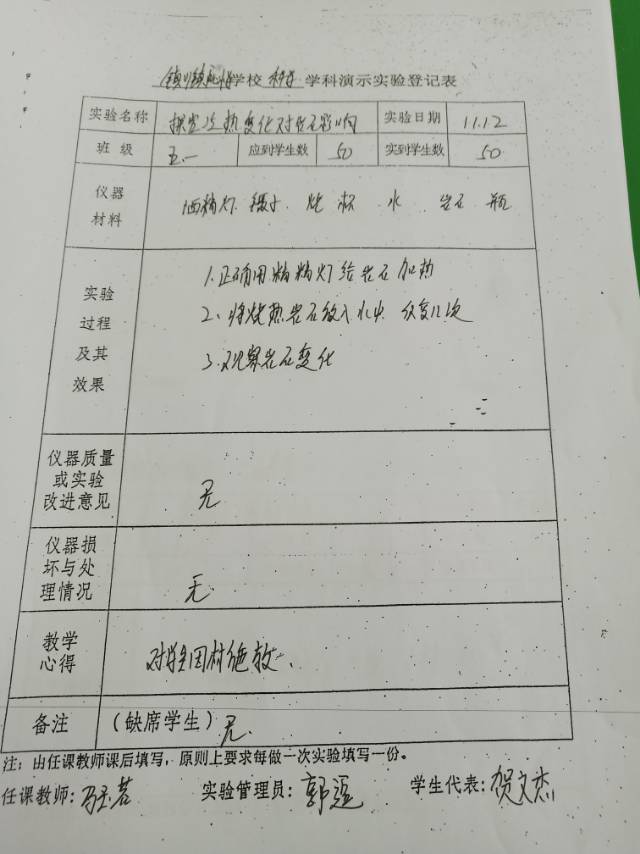 学校 科学 学科演示实验登记表
实验名称 探究冷热变化对岩石影响 实验日期 11.12
班级 五.一 应到学生数 50 实到学生数 50
仪器
材料
酒精灯. 镊子. 烧杯 水 岩石 瓶
实验
过程
及其
效果
1.正确用酒精灯给岩石加热
2、将烧热岩石放入水中 反复几次
3.观察岩石变化
仪器质量
或实验
改进意见
无
仪器损
坏与处
理情况
无
教学
心得
因材施教
备注 (缺席学生) 无.
注:由任课教师课后填写,原则上要求每做一次实验填写一份。
任课教师: 实验管理员: 郭 学生代表: 贺文杰